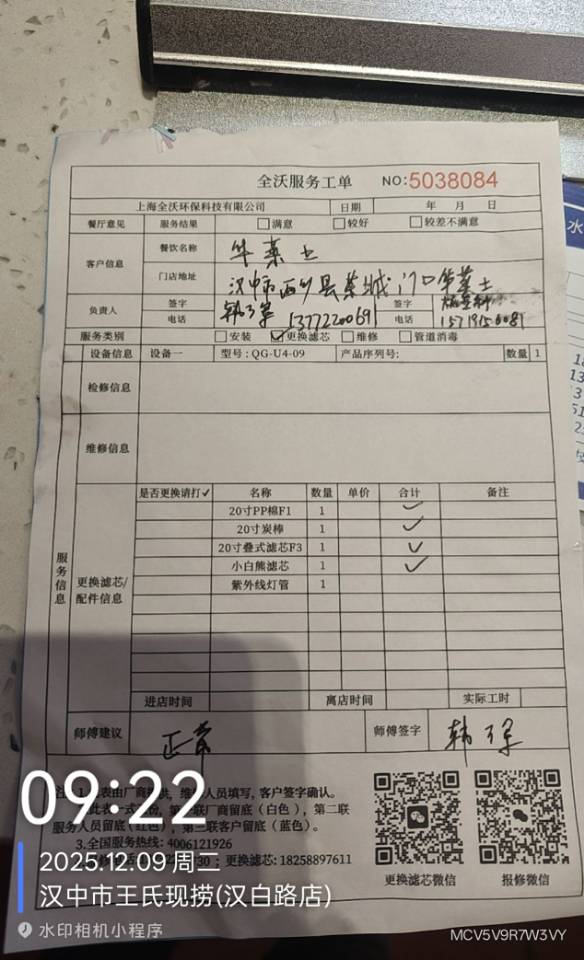 全沃服务工单 NO:5038084
上海全沃环保科技有限公司 日期 年 月 日
餐厅意见 服务结果 满意 较好 较差不满意
客户信息 餐饮名称 华莱士
门店地址 汉中市西乡县 城门口华莱士
负责人 签字 签字
电话 13772220691 电话
服务类别 安装 ✓更换滤芯 维修 管道消毒
设备信息 设备一 型号:QG-U4-09 产品序列号: 数量 1
检修信息
维修信息
服务信息
更换滤芯/配件信息
是否更换请打✓ 名称 数量 单价 合计 备注
20寸PP棉F1 1 ✓
20寸炭棒 1 ✓
20寸叠式滤芯F3 1 ✓
小白熊滤芯 1 ✓
紫外线灯管 1
进店时间 离店时间 实际工时
师傅建议 正常 师傅签字 韩
表由厂商 人员填写，客户签字确认。
联厂商留底（白色），第二联
服务人员留底（红色），第三联客户留底（蓝色）。
3.全国服务热线: 4006121926
30；更换滤芯: 18258897611
更换滤芯微信 报修微信
09:22
2025.12.09 周二
汉中市王氏现捞(汉白路店)
水印相机小程序
MCV5V9R7W3VY